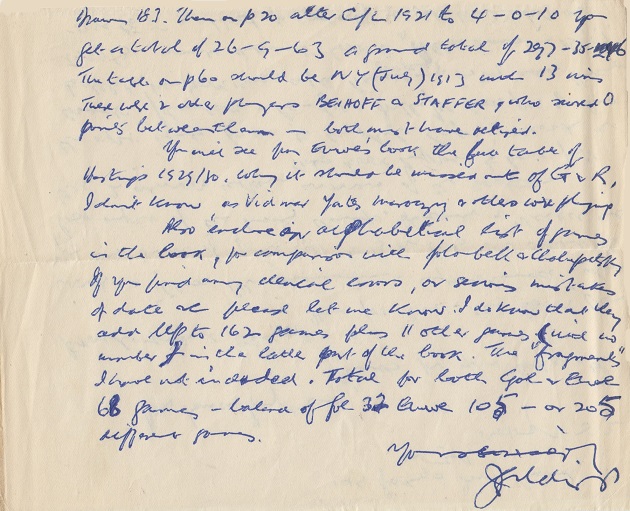 Drawn 183. Then on p20 alter C/L 1921 to 4-0-10 you
get a total of 26-9-63 a grand total of 297-35-246
The table on p60 should be NY (July) 1913 with 13 wins
There were 2 other players BEIHOFF & STAFFER, who scored 0
points between them — both must have retired.
You will see from Euwe's book the full table of
Hastings 1929/30. Why it should be missed out of G & R,
I don't know as Vidmar Yates Maroczy & others were playing
Also enclose an alphabetical list of games
in the book, for comparison with
If you find any clerical errors, or serious mistakes
of date etc please let me know. I do know that they
add up to 162 games plus 11 other games (with no
number) in the latter part of the book. The "fragments"
I have not included. Total for both Gol & Euwe
68 games – balance of 32 Euwe 105 – or 205
different games.
Yours sincerely